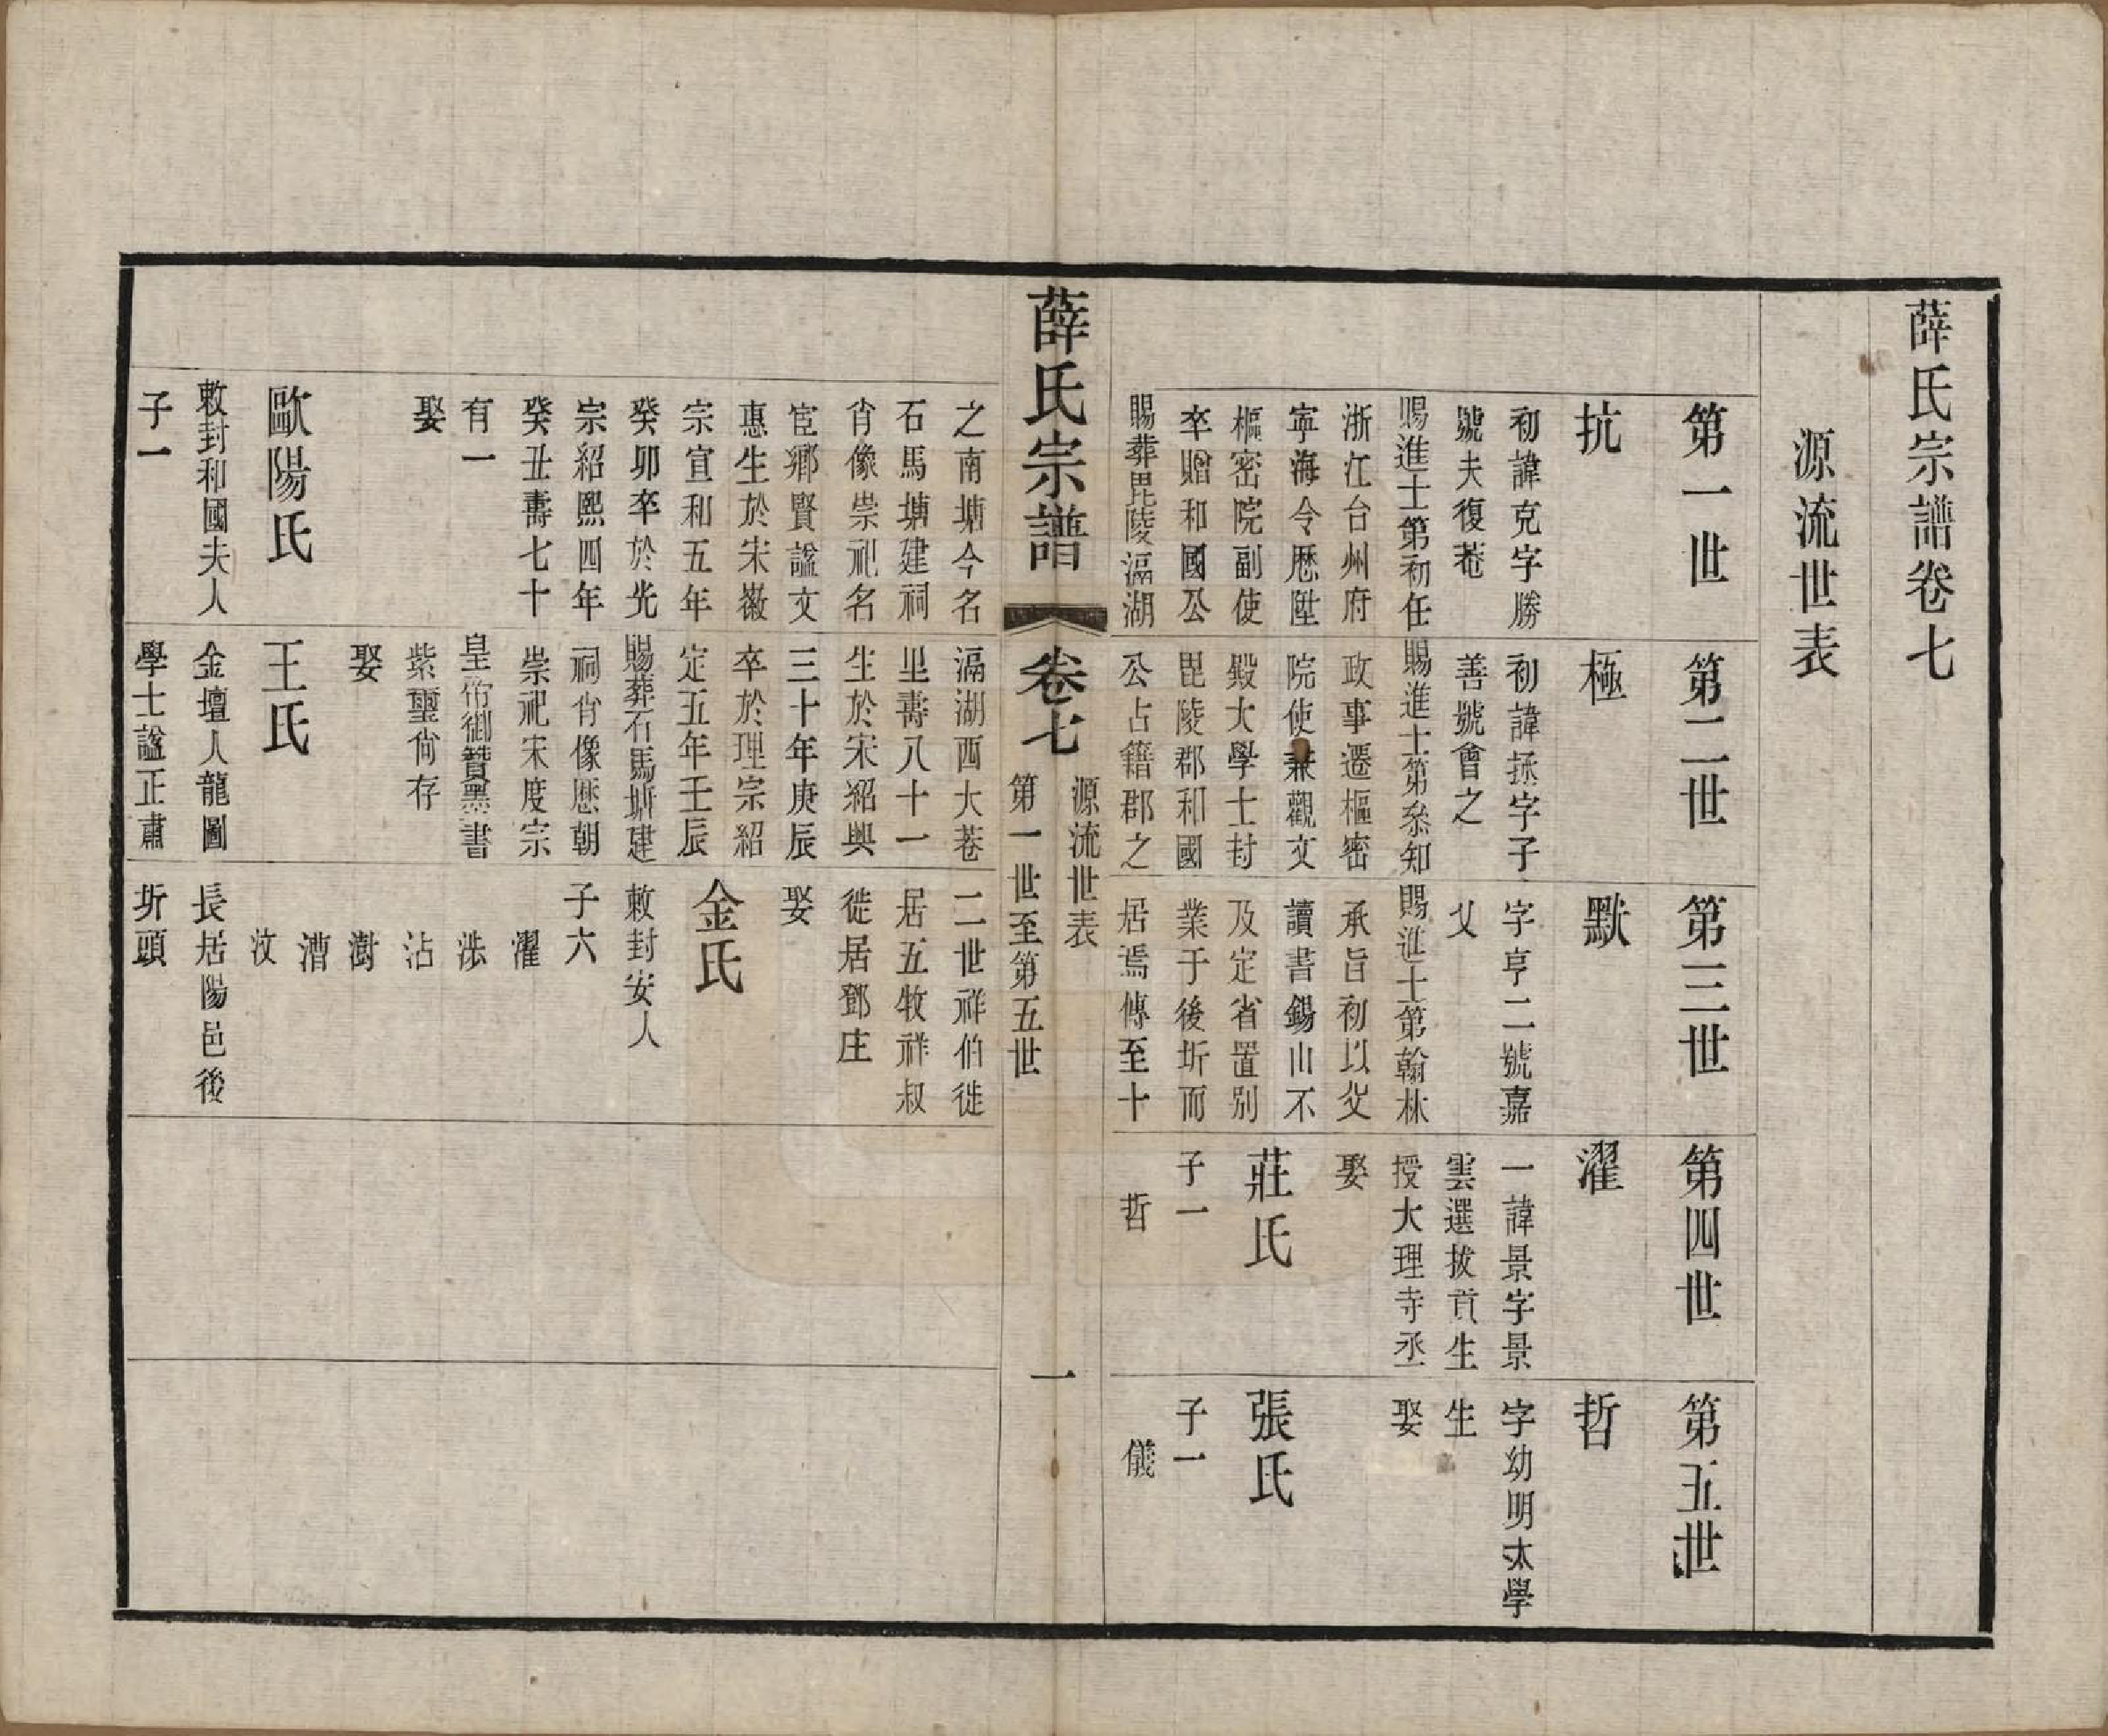 薛氏宗譜卷七
源流世表
第一世
抗
初諱克字勝
號夫復菴
賜進士第初任
浙江台州府
寧海令歷陞
樞密院副使
卒贈和國公
賜葬毘陵滆湖
第二世
極
初諱拯字子
善號會之
賜進士第叅知
政事遷樞密
院使兼觀文
殿大學士封
毘陵郡和國
公占籍郡之
第三世
默
字亨二號嘉
乂
賜進士第翰林
承旨初以父
讀書錫山不
及定省置別
業于後圻而
居焉傳至十
第四世
濯
一諱景字景
雲選拔貢生
授大理寺丞
娶
莊氏
子一
哲
第五世
哲
字幼明太學
生
娶
張氏
子一
儀
薛氏宗譜
卷七
源流世表
第一世至第五世
一
之南塘今名
石馬塘建祠
肖像崇祀名
宦鄉賢諡文
惠生於宋徽
宗宣和五年
癸卯卒於光
宗紹熙四年
癸丑壽七十
有一
娶
歐陽氏
敕封和國夫人
子一
滆湖西大菴
里壽八十一
生於宋紹興
三十年庚辰
卒於理宗紹
定五年壬辰
賜葬石馬塘建
祠肖像歷朝
崇祀宋度宗
皇帝御贊墨書
紫璽尙存
娶
王氏
金壇人龍圖
學士諡正肅
二世祥伯徙
居五牧祥叔
徙居鄧庄
娶
金氏
敕封安人
子六
濯
洪
沾
澍
漕
汶
長居陽邑後
圻頭